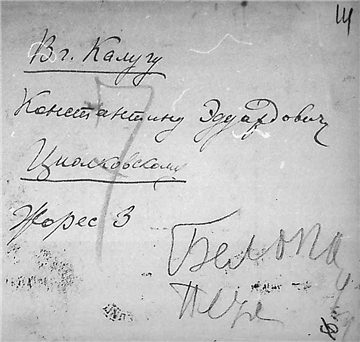 14
В г. Калугу
Константину Эдуардович
Циолковскому
Жорес 3
7